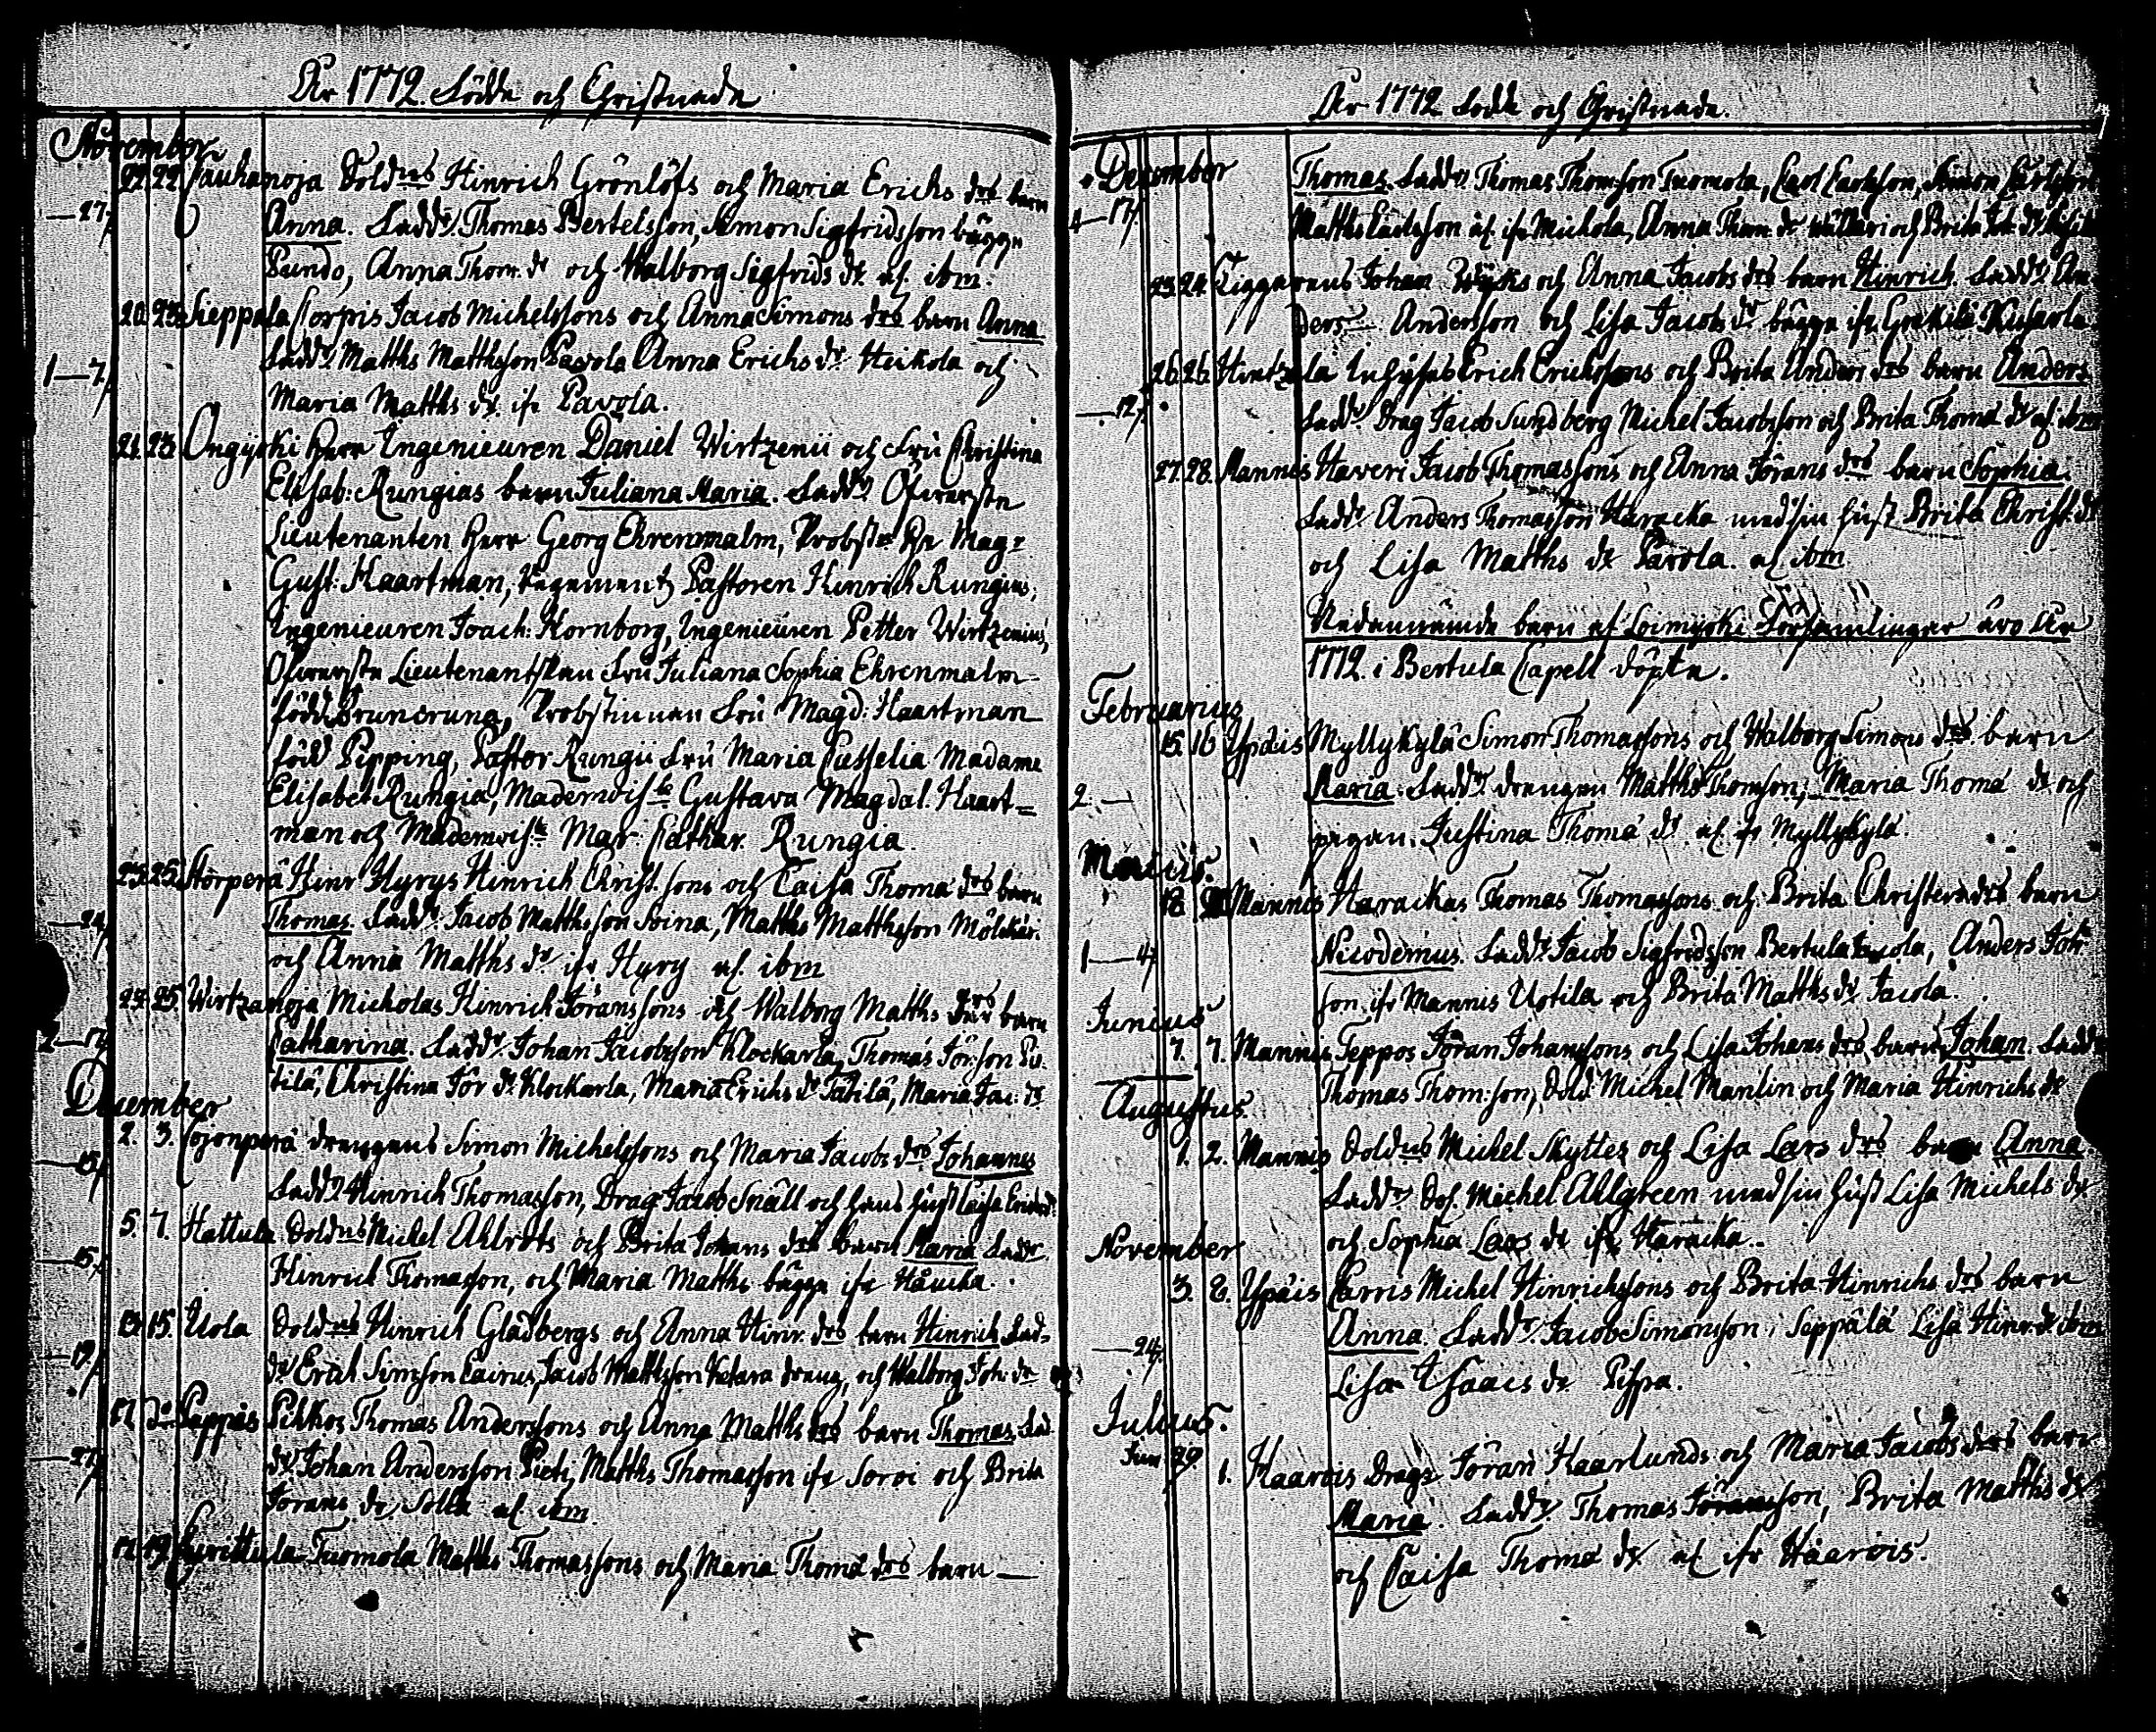 År 1772. Födde och Christnade
November
22. 22. Pauhanoja Sold:ns Hinrich Grönlöfs och Maria Erichs drs barn
—27. Anna. Faddr. Thomas Bertelsson, Simon Sigfridsson bägge
Pundo, Anna Thom: dr och Walborg Sigfrids dr af ibm.
20. 23. Sieppala Jacob Michelssons och Anna Simons drs barn Anna
1—7. Faddr. Matths Matthsson Pavola Anna Erichs dr Heikola och
Maria Matths dr ifr Pavola.
21. 23. Ongyski Herr Ingenieuren Daniel Wirtzenii och Fru Christina
Elisab: Rungias barn Juliana Maria. Faddr. Öfwerste
Lieutenanten Herr Georg Ehrenmalm, Probsten Hr Magr
Gust: Haartman, Regements Pastoren Hinrich Rungius,
Ingenieuren Joach: Kornborg, Ingenieuren Petter Wirtzenius,
Öfwerste Lieutenantskan Fru Juliana Sophia Ehrenmalm
född Bruncrona, Probstinnan Fru Magd: Haartman
född Pipping, Pastor Rungii Fru Maria Madame
Elisabet Rungia, Mademoisle Gustava Magdal. Haart=
man och Mademoisle Mar: Cathar. Rungia.
23. 25. Storperä Hinr Hyrys Hinrich Christ:sons och Caisa Thomæ drs barn
—24. Thomas. Faddr. Jacob Matthsson Soina, Matths Matthsson Mölckäri
och Anna Matths dr ifr Hyry af ibm
24. 25. Wirtzanoja Micholas Hinrich Jöranssons och Walborg Matths drs barn
2—17. Catharina. Faddr. Johan Jacobsson Klockarla, Thomas Jör:son
tilä, Christina Jör dr Klockarla, Maria Erichs dr Tätilä, Maria Jac: dr
December
2. 3. Sojonperä drengens Simon Michelssons och Maria Jacobs drs Johannes
—15. Faddr. Hinrich Thomasson, Drag: Jacob Snäll och hans hust Caisa Erichs dr
5. 7. Hattula Sold:ns Michel Ahlrots och Brita Johans drs barn Maria Faddr.
—15. Hinrich Thomasson, och Maria Matths bägge ifr
13. 15. Uola Sold:ns Hinrich Gladbergs och Anna Hinr: drs barn Hinrich Fad-
—19. dr Erich Simsson Cairus, Jacob Matthsson dreng, och Walborg Joh: dr
17. do Pappis Pehkos Thomas Anderssons och Anna Matths drs barn Thomas. Fad-
—27. dr Johan Andersson Pieti, Matths Thomasson ifr Soroi och Brita
Jörans dr Solla af ibm.
17. 19. Tuomola Matths Thomassons och Maria Thomæ drs barn —
År 1772 Födde och Christnade.
December
Thomas. Faddr. Thomas Thomsson Tuomola, Carl Carlsson, Simon Carlsson
4—17. Matths Carlsson af ifr Michola, Anna Thom: dr och Brita
23. 24. Tiggarens Johan och Anna Jacobs drs barn Hinrich. Faddr. An-
ders Andersson och Lisa Jacobs dr bägge ifr
26. 26. Hirtzala Inhyses Erich Erichssons och Brita Anders drs barn Anders
—12. Faddr. Drag Jacob Sundberg Michel Jacobsson och Brita Thomæ dr af ibm
27. 28. Mannis Haveri Jacob Thomassons och Anna Jörans drs barn Sophia.
Faddr. Anders Thomasson Haracka med sin hust Brita Christ: dr
och Lisa Matths dr Pavola. af ibm
Nedannämde barn af Loimijoki Församlingar äro År
1772. i Bertula Capell döpta.
Februarius
15. 16 Ypäis Myllykylä Simon Thomassons och Walborg Simons drs barn
2.— Maria. Faddr. drengen Matths Thomsson, Maria Thomæ dr och
pigan Justina Thomæ dr af ifr Myllykylä.
Martius.
18. Mannis Harackas Thomas Thomassons och Brita Christers drs barn
1—4. Nicodemus. Faddr. Jacob Sigfridsson Bertula Jacola, Anders Joh:
son ifr Mannis Uotila och Brita Matths dr Jacola.
Junius
7. 7. Mannis Teppos Jöran Johanssons och Lisa Johans drs barn Johan. Faddr.
Thomas Thom:son, Sold. Michel Manlin och Maria Hinrichs dr
Augustus.
1. 2. Mannis Sold:ns Michel Skyttes och Lisa Lars drs barn Anna.
Faddr. Sol. Michel Ahlgreen med sin hust Lisa Michels dr
och Sophia Lars dr ifr Haracka.
November
3. 8. Ypäis Carris Michel Hinrichssons och Brita Hinrichs drs barn
—24. Anna. Faddr. Jacob Simonsson, Seppälä Lisa Hinr: dr ibm
Lisa Isaacs dr Pispa.
Julius.
Jun 29 1. Haarois Drags Jöran Haarlunds och Maria Jacobs drs barn
Maria. Faddr. Thomas Jöransson, Brita Matths dr
och Caisa Thomæ dr af ifr Haarois.